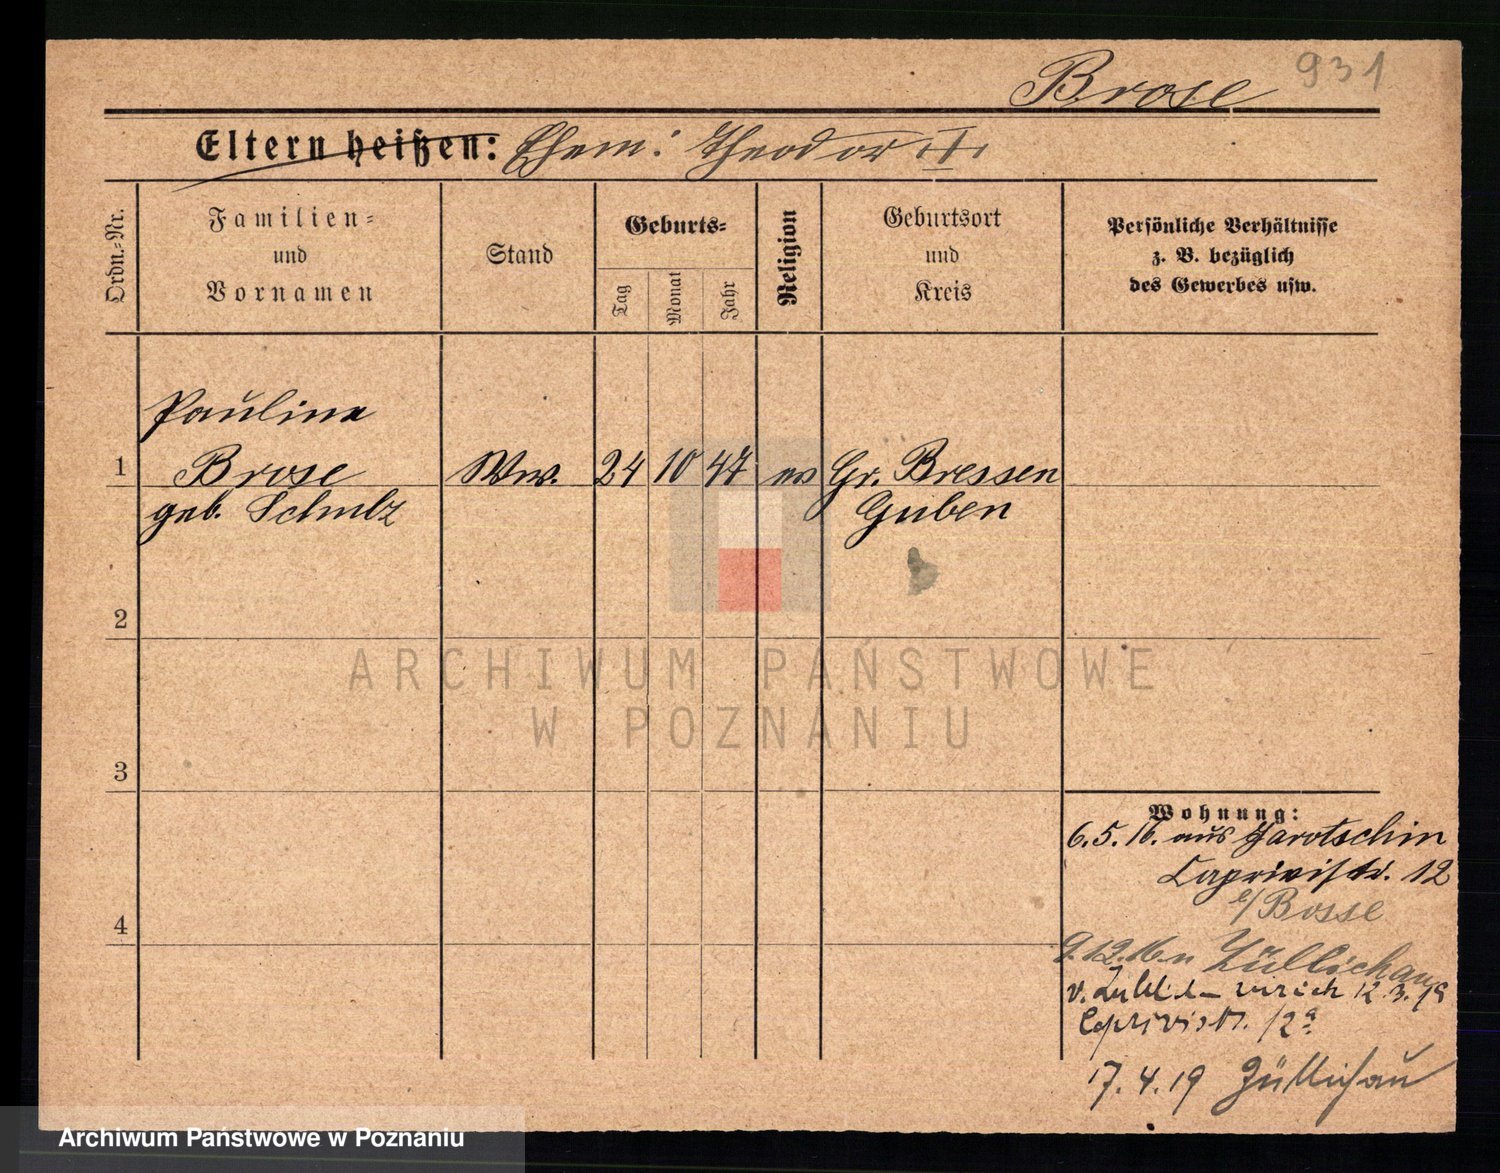 Brose 931
Eltern heißen: Ehem: Theodor †
Ordn.-Nr.
Familien- und Vornamen
Stand
Geburts-
Tag
Monat
Jahr
Religion
Geburtsort und Kreis
Persönliche Verhältnisse
z. B. bezüglich
des Gewerbes usw.
Pauline
1 Brose Ww. 24 10 47 ev Gr. Bressen
geb. Schulz Guben
2
ARCHIWUM PAŃSTWOWE
W POZNANIU
3
Wohnung:
6.5.16. aus Jarotschin
Caprivistr. 12
b/Bosse
4
9.12.16. n Züllichau
v. zurück 12.3.18
Caprivistr. 12a
17.4.19 Züllichau
Archiwum Państwowe w Poznaniu